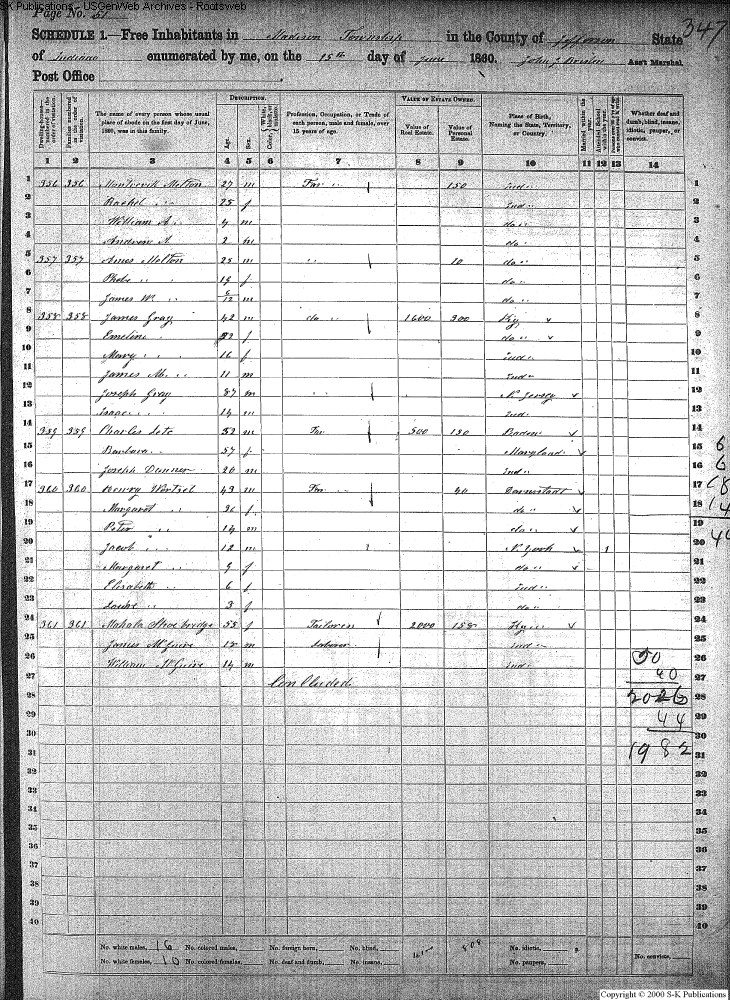 S-K Publications - USGenWeb Archives - Rootsweb
Page No. 51
347
SCHEDULE 1.—Free Inhabitants in Madison Township in the County of Jefferson State
of Indiana enumerated by me, on the 15th day of June 1860. John Ass't Marshal
Post Office
DESCRIPTION. VALUE OF ESTATE OWNED.
Dwelling-houses—numbered in the order of visitation. Families numbered in the order of visitation. The name of every person whose usual place of abode on the first day of June, 1860, was in this family. Age. Sex. Color, White, black, or mulatto. Profession, Occupation, or Trade of each person, male and female, over 15 years of age. Value of Real Estate. Value of Personal Estate. Place of Birth, Naming the State, Territory, or Country. Married within the year. Attended School within the year. Whether deaf and dumb, blind, insane, idiotic, pauper, or convict.
1 2 3 4 5 6 7 8 9 10 11 12 13 14
1 356 356 Melton 27 m Far " 150 Ind " 1
2 Rachel " 25 f Ind " 2
3 William A " 4 m do " 3
4 Andrew A 2 m do 4
5 357 357 Amos Melton 25 m " 10 do " 5
6 Phebe " " 19 f do " 6
7 James W. " " /12 m do " 7
8 358 358 James Gray 42 m do " 1600 300 Ky " 8
9 Emeline " f do " 9
10 Mary " " 16 f Ind " 10
11 James M. " " 11 m Ind " 11
12 Joseph Gray 87 m " " N. Jersey 12
13 Isaac " " 14 m Ind 13
14 359 359 Charles 52 m Far 500 150 Baden 14
15 Barbara " 57 f Maryland 15
16 Joseph Danner 20 m Ind " 16
17 360 360 Henry Wertzel 43 m Far " 40 Darmstadt 17
18 Margaret " 36 f do " 18
19 Peter " 14 m do " 19
20 Jacob " " 12 m N. York 1 20
21 Margaret " 9 f do " 21
22 Elisabeth " 6 f Ind " 22
23 " 3 f do " 23
24 361 361 Mahala Strowbridge 55 f Tailoress 2000 158 Ky " 24
25 James McGuire m Laborer Ind " 25
26 William McGuire 14 m Ind 26
27 Concluded. 27
28 28
29 29
30 30
31 31
32 32
33 33
34 34
35 35
36 36
37 37
38 38
39 39
40 40
6
6
18
14
44
50
40
2026
44
1982
No. white males, 16 No. colored males, No. foreign born, No. blind, 808 No. idiotic,
No. white females, 10 No. colored females, No. deaf and dumb, No. insane, No. paupers, No. convicts,
Copyright © 2000 S-K Publications